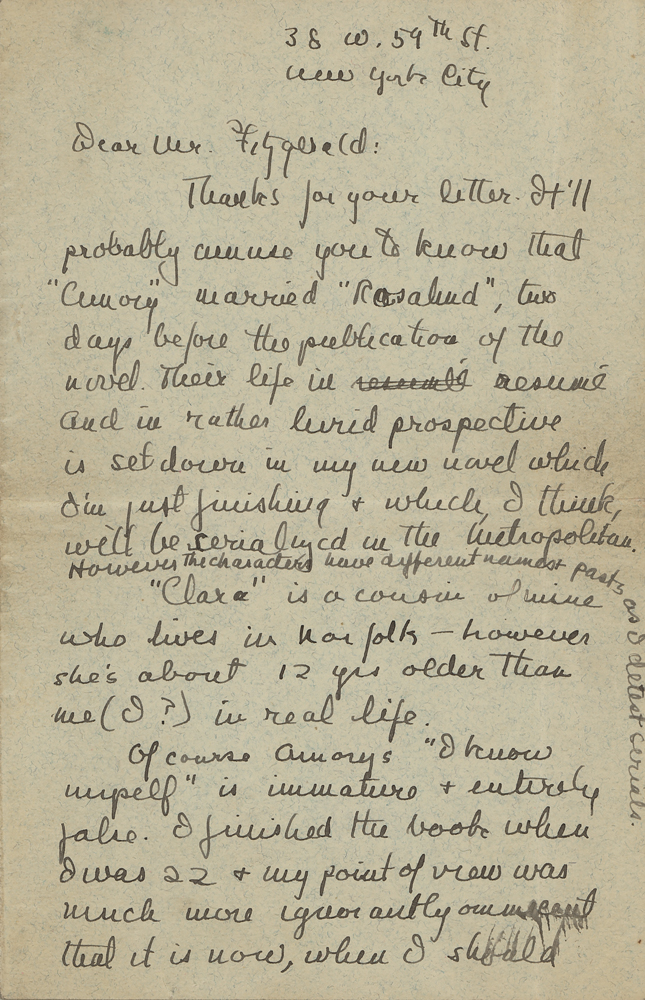 38 W. 59th St.
New York City
Dear Mr. Fitzgerald:
Thanks for your letter. It'll
probably amuse you to know that
"Amory" married "Rosalind", two
days before the publication of the
novel. Their life in resumé resumé
and in rather lurid prospective
is set down in my new novel which
I'm just finishing & which, I think,
will be serialized in the Metropolitan.
However the characters have different names & pasts as I detest serials.
"Clara" is a cousin of mine
who lives in Norfolk — however
she's about 12 yrs older than
me (I?) in real life.
Of course Amorys "I know
myself" is immature & entirely
false. I finished the book when
I was 22 & my point of view was
much more ignorantly omniscent
that it is now, when I should